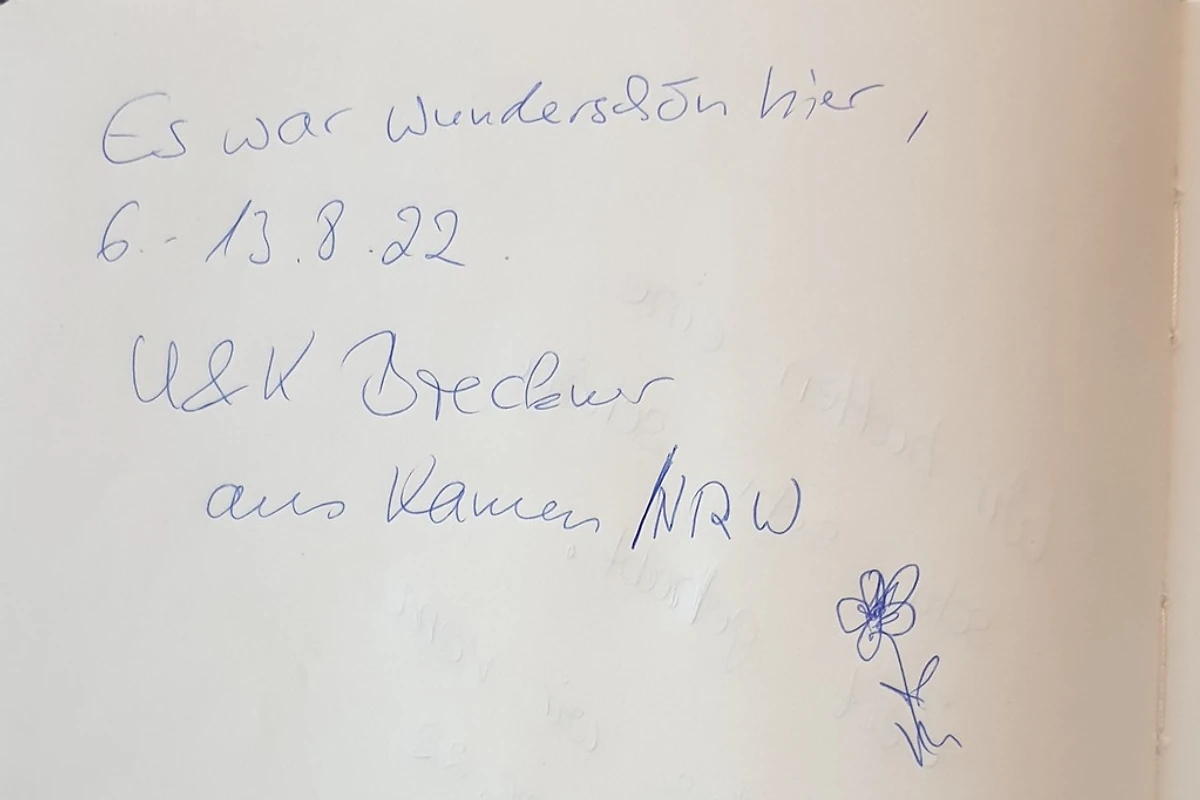 Es war wunderschön hier,
6.- 13.8.22.
U&K Breckner
aus Kamen /NRW